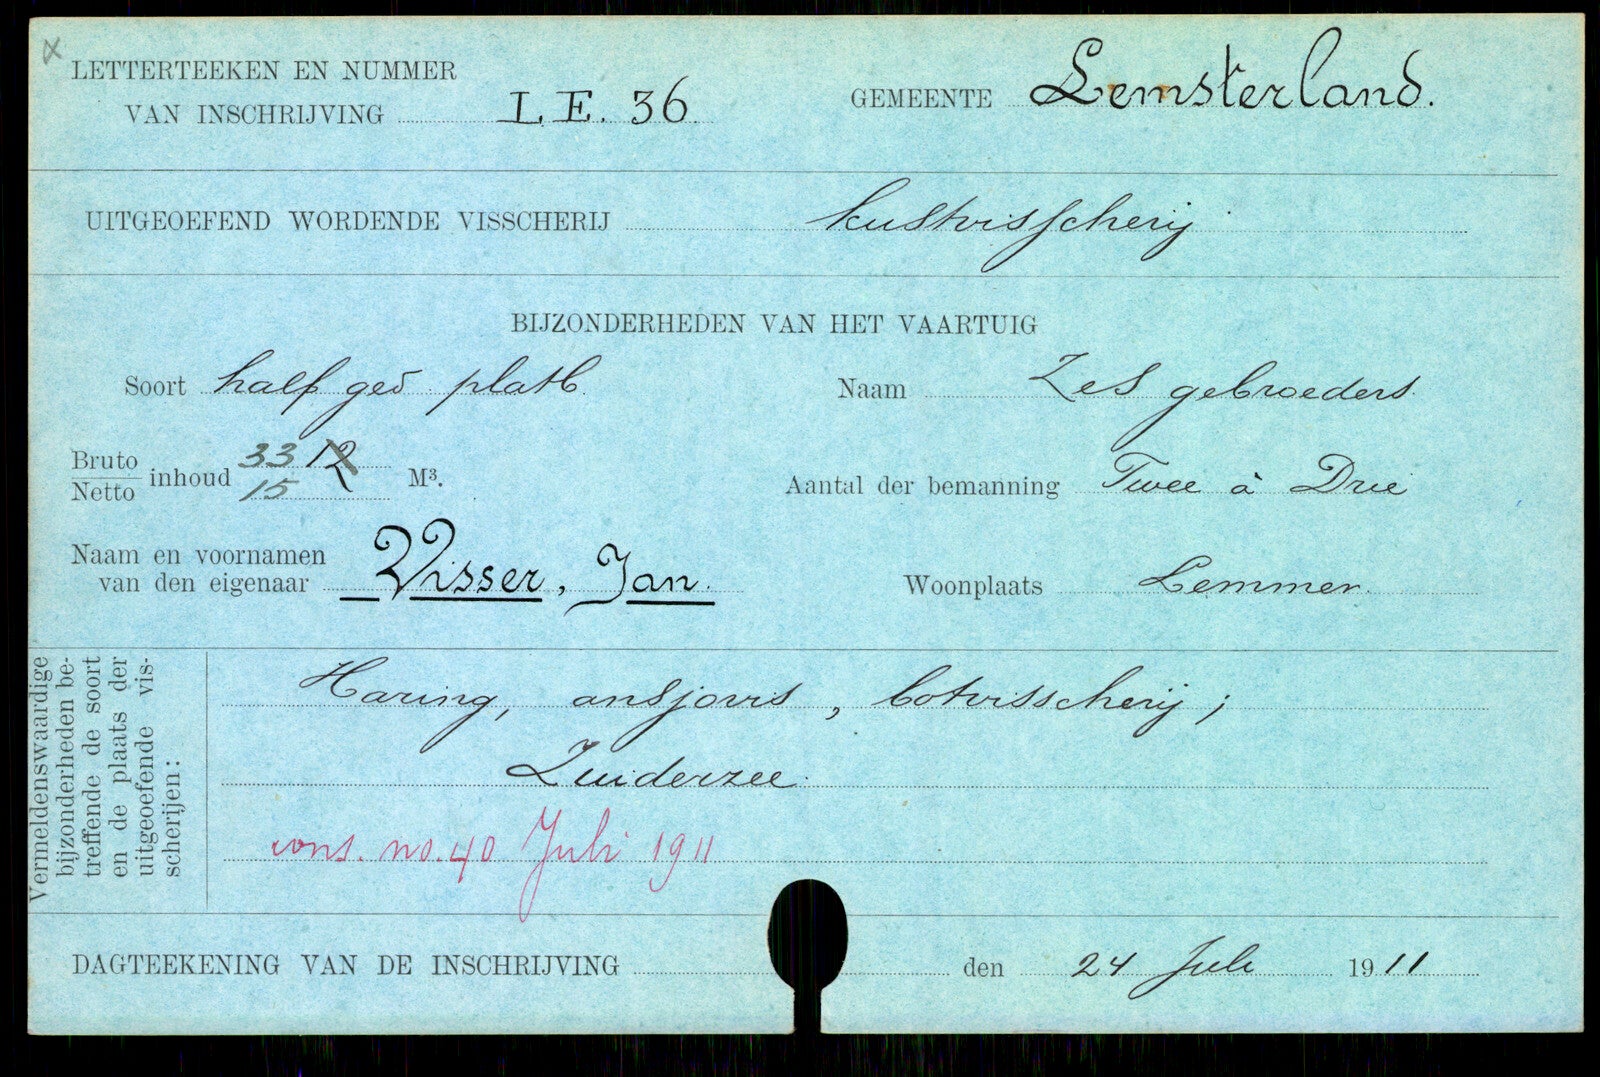 LETTERTEEKEN EN NUMMER
VAN INSCHRIJVING L.E. 36
GEMEENTE Lemsterland.
UITGEOEFEND WORDENDE VISSCHERIJ kustvisscherij
BIJZONDERHEDEN VAN HET VAARTUIG
Soort half ged platb.
Naam Zes gebroeders.
Bruto
Netto inhoud 33 12
15 M³.
Aantal der bemanning Twee à Drie
Naam en voornamen
van den eigenaar Visser, Jan.
Woonplaats Lemmer.
Vermeldenswaardige
bijzonderheden be-
treffende de soort
en de plaats der
uitgeoefende vis-
scherijen:
Haring, ansjovis, botvisscherij;
Zuiderzee.
cons. no. 40 Juli 1911
DAGTEEKENING VAN DE INSCHRIJVING den 24 Juli 1911